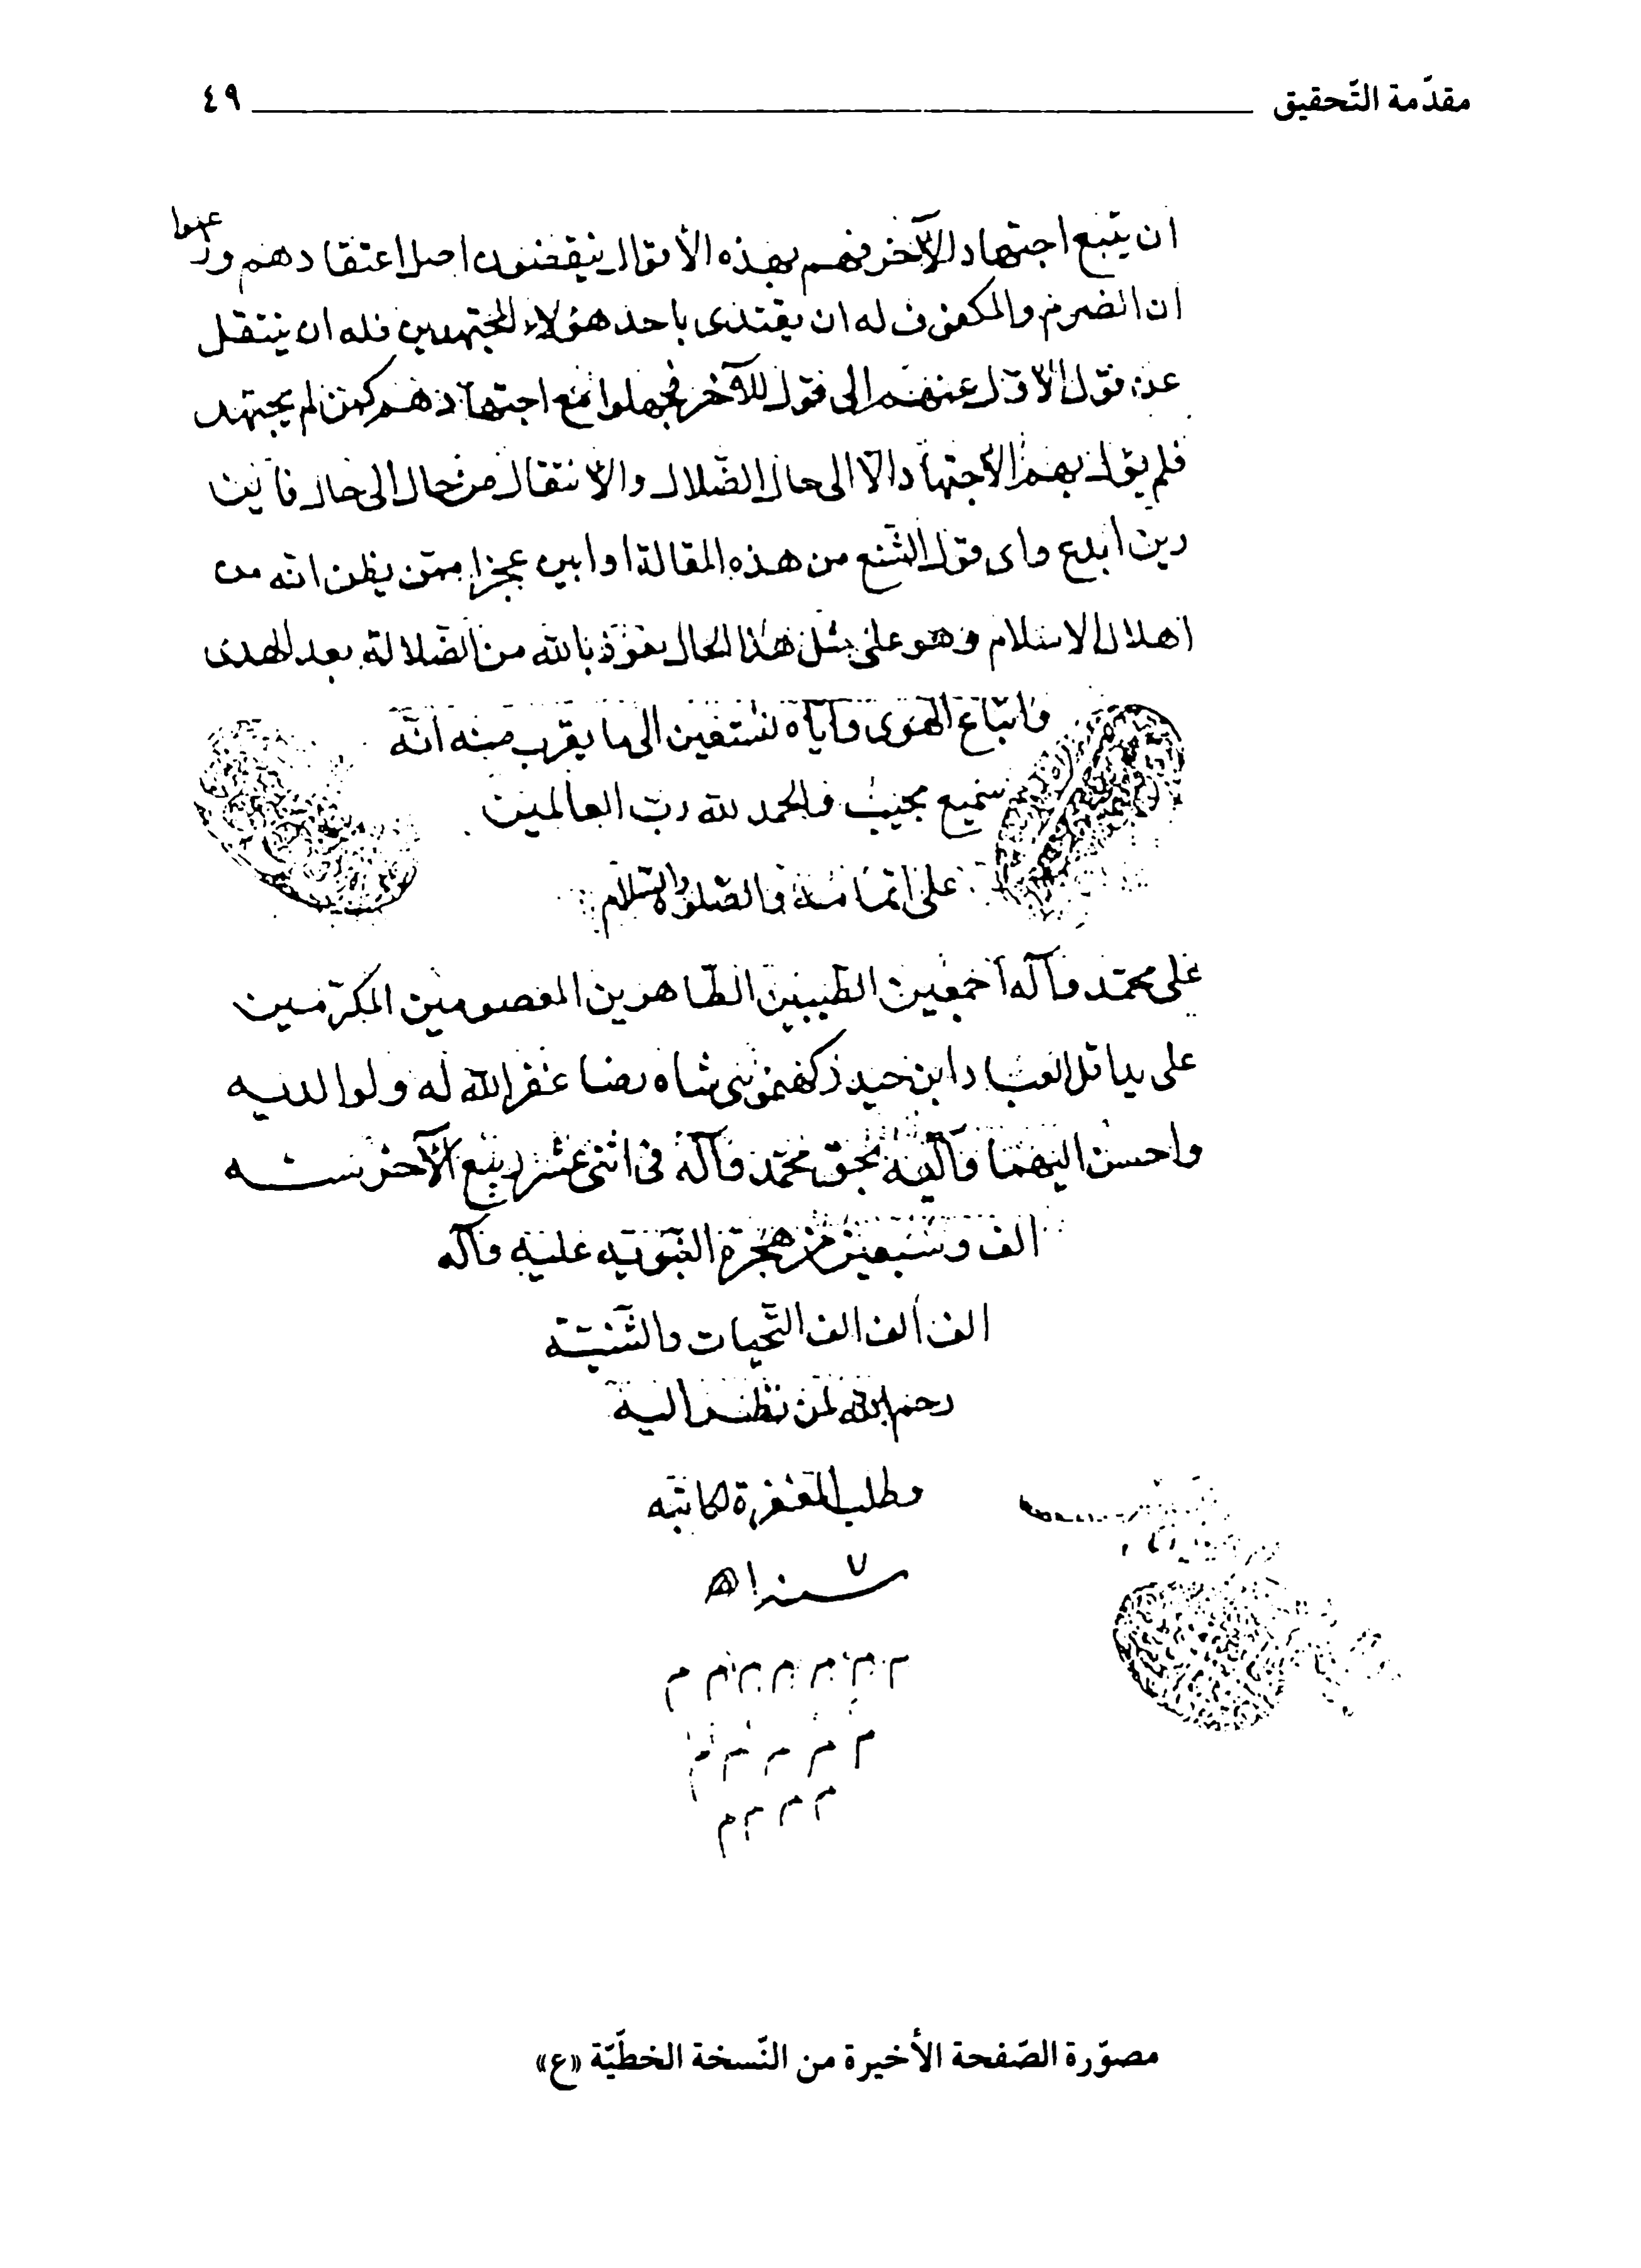 مقدّمة التّحقيق ٤٩
ان يتبع اجتهاد الآخر فهم بهذه الأقوال ينقضون اصل اعتقادهم وزعموا
ان الضرير والمكفوف له ان يقتدى باحد هؤلاء المجتهدين فله ان ينتقل
عن قول الاول منهم الى قول الآخر فجعلوا مع اجتهادهم كمن لم يجتهد
فلم يؤل بهم الاجتهاد الّا الى حال الضّلال والانتقال من حال الى حال فاىّ
دين ابدع واى قول اشنع من هذه المقالة او ابين عجزا ممّن يظن انّه من
اهل الاسلام وهو على مثل هذا الحال نعوذ بالله من الضّلالة بعد الهدى
واتّباع الهوى وايّاه نستعين الى ما يقرب منه انّه
سميع مجيب والحمد لله ربّ العالمين
على اتمامه والصّلوة والسّلام
على محمّد وآله اجمعين الطّيبين الطّاهرين المعصومين المكرّمين
على يد اقل العباد ابن حيدر شاه رضا غفر الله له ولوالديه
واحسن اليهما واليه بحق محمّد وآله فى اثنى عشر ربيع الآخر سنه
الف وسبعين من هجرة النّبويّه عليه وآله
الف الف الف التّحيات والثّنيّة
رحم الله لمن نظر اليه
وطلب المغفرة لكاتبه
م م م م م م م
م م م م م
م م م م
مصوّرة الصّفحة الأخيرة من النّسخة الخطّيّة «ع»